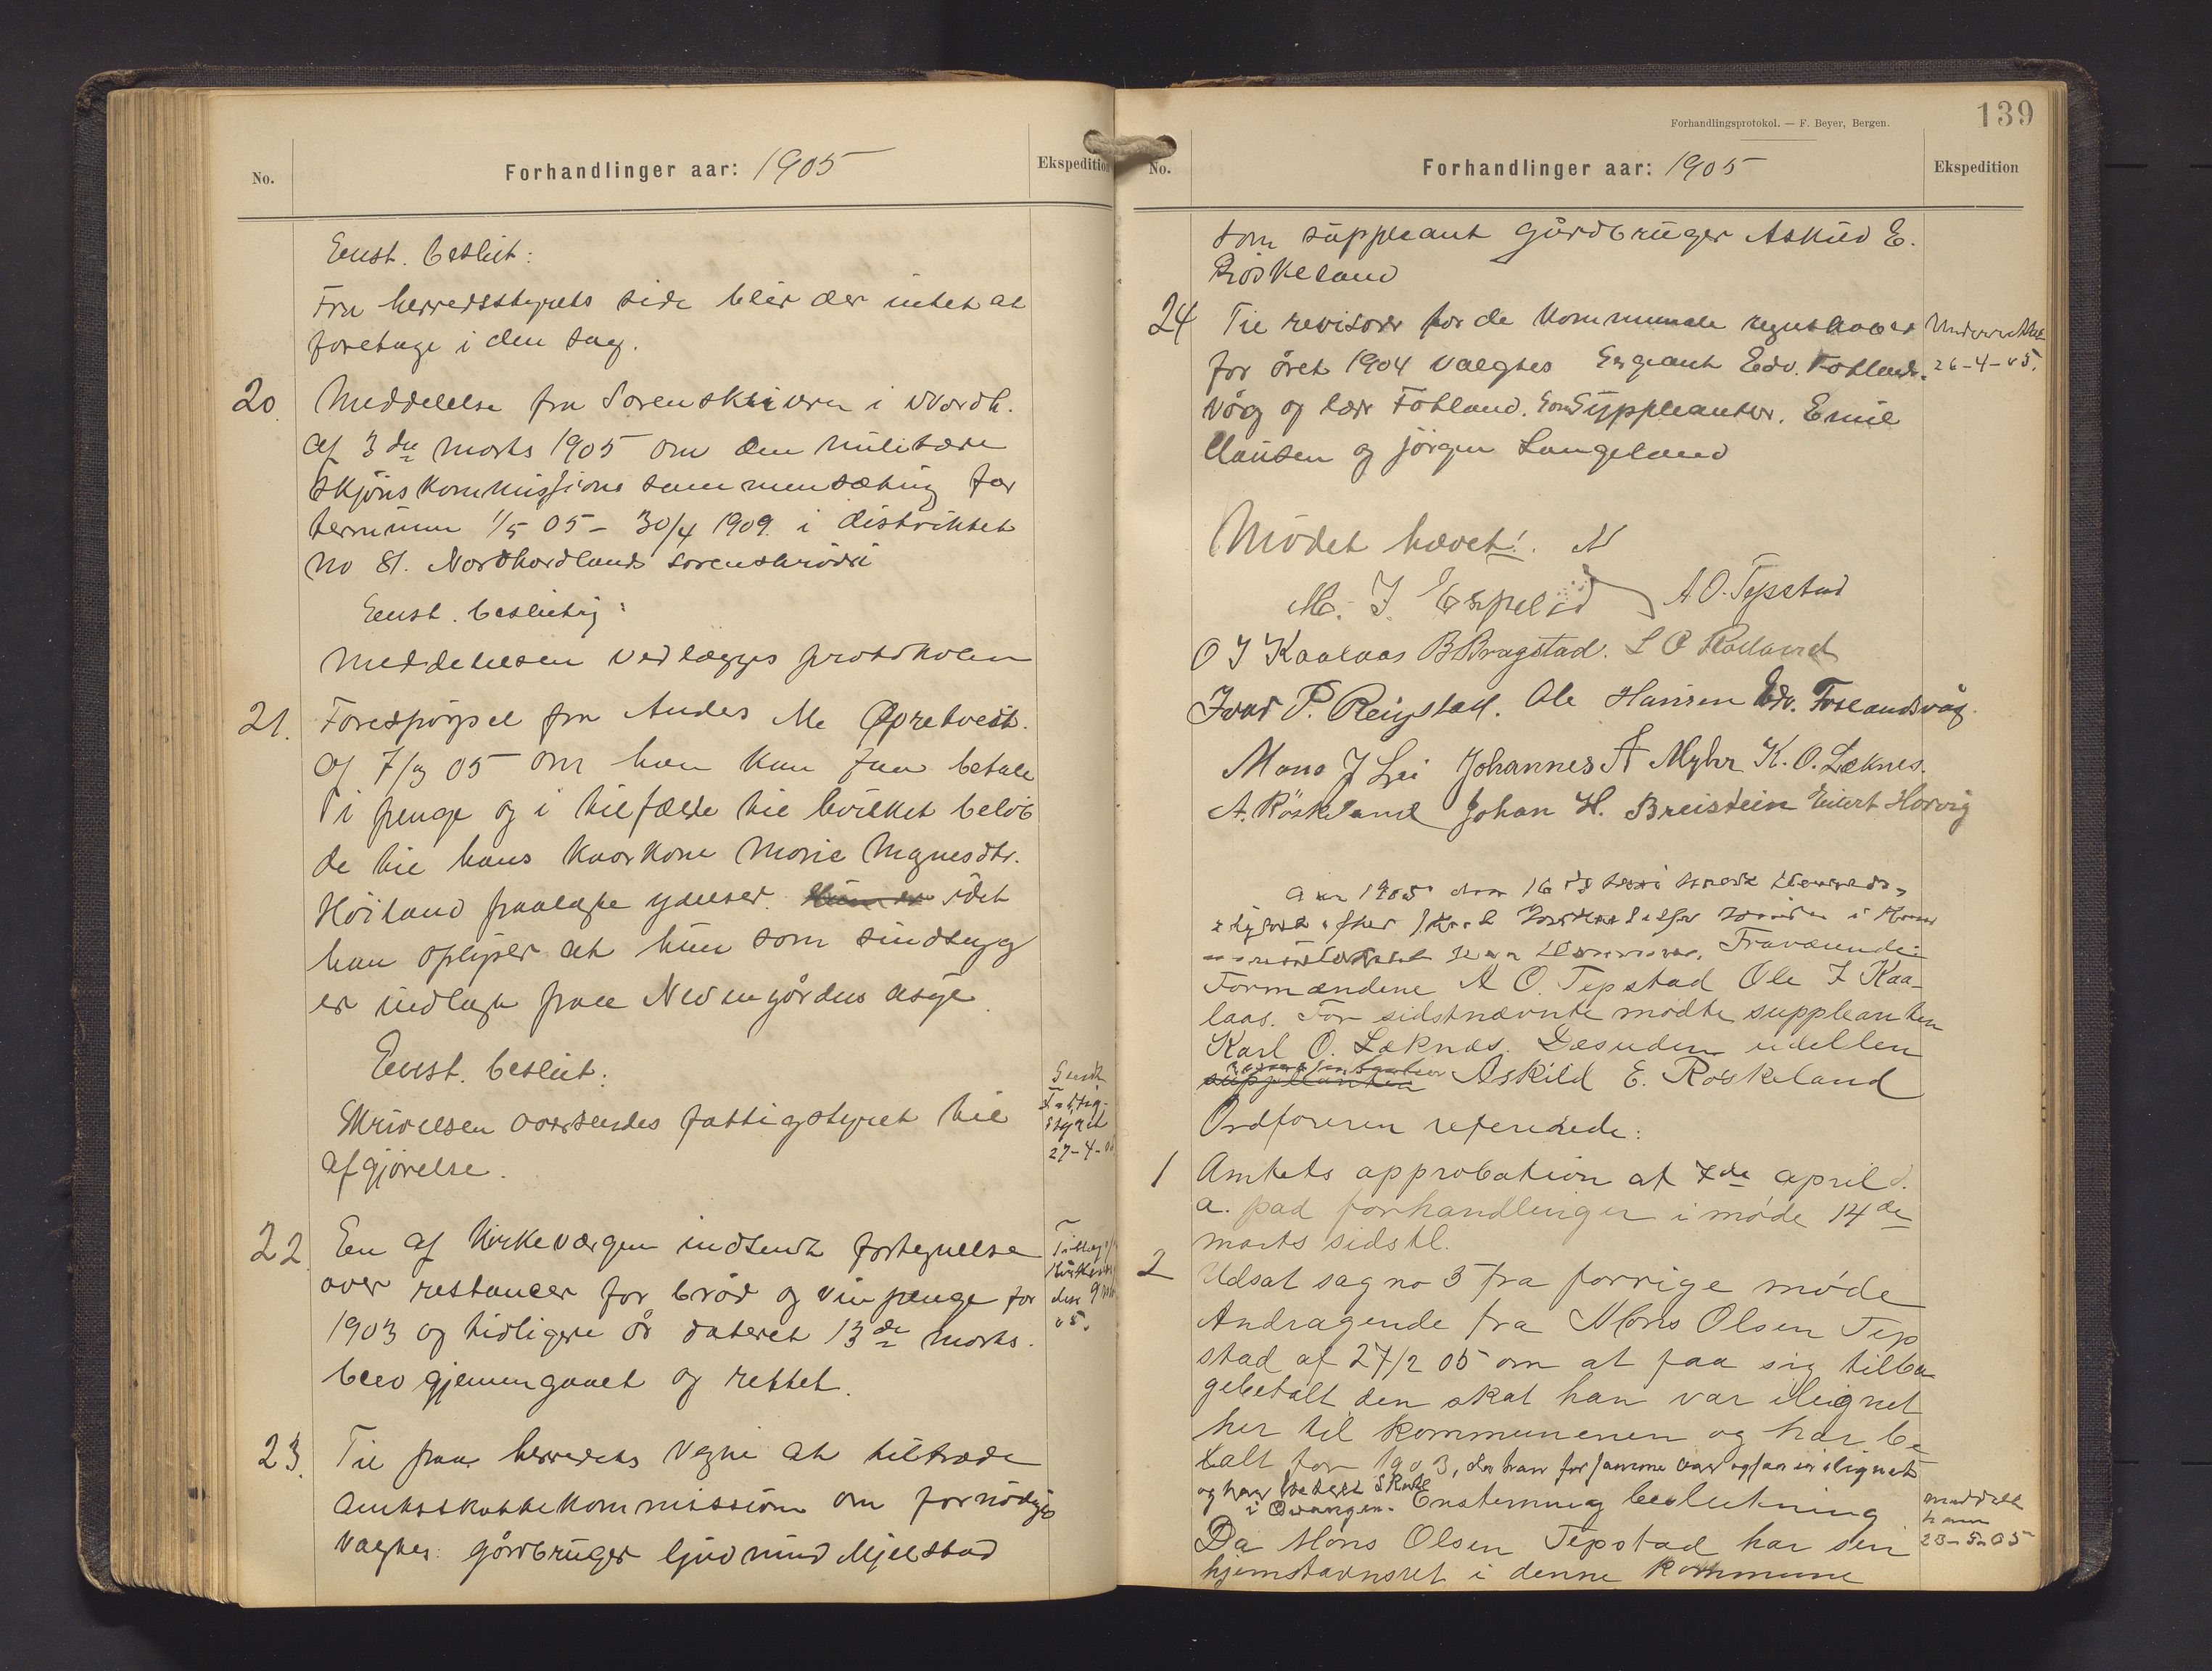 No.
Forhandlinger aar: 1905
Ekspedition
Enst. beslut:
Fra herredsstyrets side blir der intet at
foretage i den sag.
20 Meddelelse fra Sorenskriveren i Nordh.
af 3die marts 1905 om den militære
skjønskommissions sammensætning for
terminen 1/5 05 – 30/4 1909. i distriktet
No 81. Nordhordlands sorenskriveri
Enst. beslutng:
meddelelsen vedlægges protokolen
21. Forespørgsel fra Anders M. Øpretveit.
af 7/3 05 om han kan faa betale
i penge og i tilfælde til hvilket beløb
de til hans kaarkone Marie Magnesdtr.
Høiland paalagte ydelser. idet
han oplyser at hun som sindssyg
er indlagt paa Nevengårdens asyl.
Enst. beslut:
Skrivelsen oversendes fattigstyret til
afgjørelse.
Sendt
Fattig-
styret
27-4-05
22 En af kirkeværgen indsendt fortegnelse
over restancer for brød og vinpenge for
1903 og tidligere år dateret 13de marts.
blev gjennemgaaet og rettet.
23. Til paa herredets vegne at tiltræde
amtsskattekommission om fornødiges
valgtes: gårdbruger Gudmund Mjelstad
Forhandlingsprotokol. — F. Beyer, Bergen.
139
No.
Forhandlinger aar: 1905
Ekspedition
som suppleant gårdbruger Askild E.
Røskeland
24 Til revisorer for de kommunale regnskaber
for året 1904 valgtes Sergeant Edv. Fotlands-
våg og lærer Fotland. Som Suppleanter. Emil
Clausen og Jørgen Langeland
Underrettet
26-4-05.
Mødet hævet!
M. J. Espelid A. O. Tepstad
O J Kaalaas B Bragstad. L O Rolland
Ivar P. Reigstad. Ole Hansen Edv. Foslandsvåg.
Mons J Lri Johannes A Myhr K. O. Læknes.
A. Röskeland Johan H. Breistein Eivert Horvig
Aar 1905 den 16de
Fraværende
Formændene A O. Tepstad Ole J Kaa-
laas. For sidstnævnte mødte suppleanten
Karl O. Læknæs. Desuden udeblev
repræsentanten Askild E. Røskeland
Ordføreren refererede:
1 Amtets approbation af 7de april d.
a. paa forhandlinger i møde 14de
marts sidstl.
2 Udsat sag no 5 fra forrige møde
Andragende fra Mons Olsen Tep
stad af 27/2 05 om at faa sig tilba
gebetalt den skat han var ilignet
her til kommunenen og har be-
talt for 1903, da han for samme aar ogsaa er ilignet
og har betalt Skat
i Evanger. Enstemmig beslutning
Da Mons Olsen Tepstad har sin
hjemstavnsret i denne kommune
meddelt
ham
23-5-05